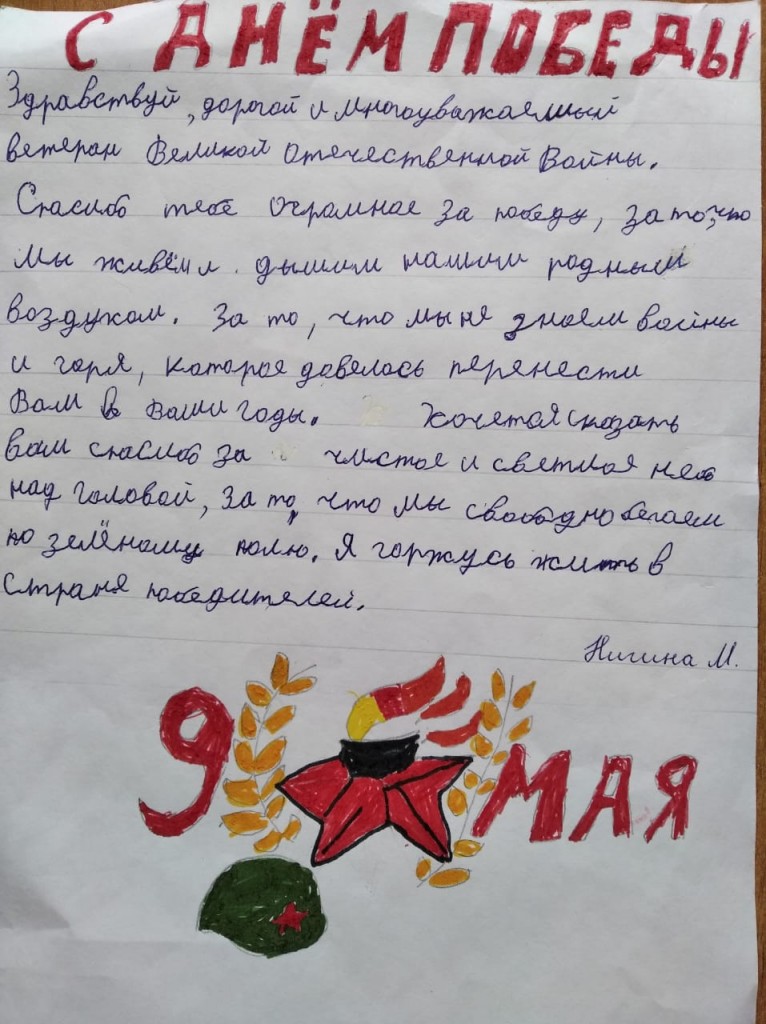 С ДНЁМ ПОБЕДЫ
Здравствуй, дорогой и многоуважаемый
ветеран Великой Отечественной Войны.
Спасибо тебе огромное за победу, за то, что
мы живём и дышим нашим родным
воздухом. За то, что мы не знаем войны
и горя, которое довелось перенести
Вам в Ваши годы. Хочется сказать
вам спасибо за чистое и светлое небо
над головой, за то, что мы свободно бегаем
по зелёному полю. Я горжусь жить в
стране победителей.
Нигина М.
9 МАЯ